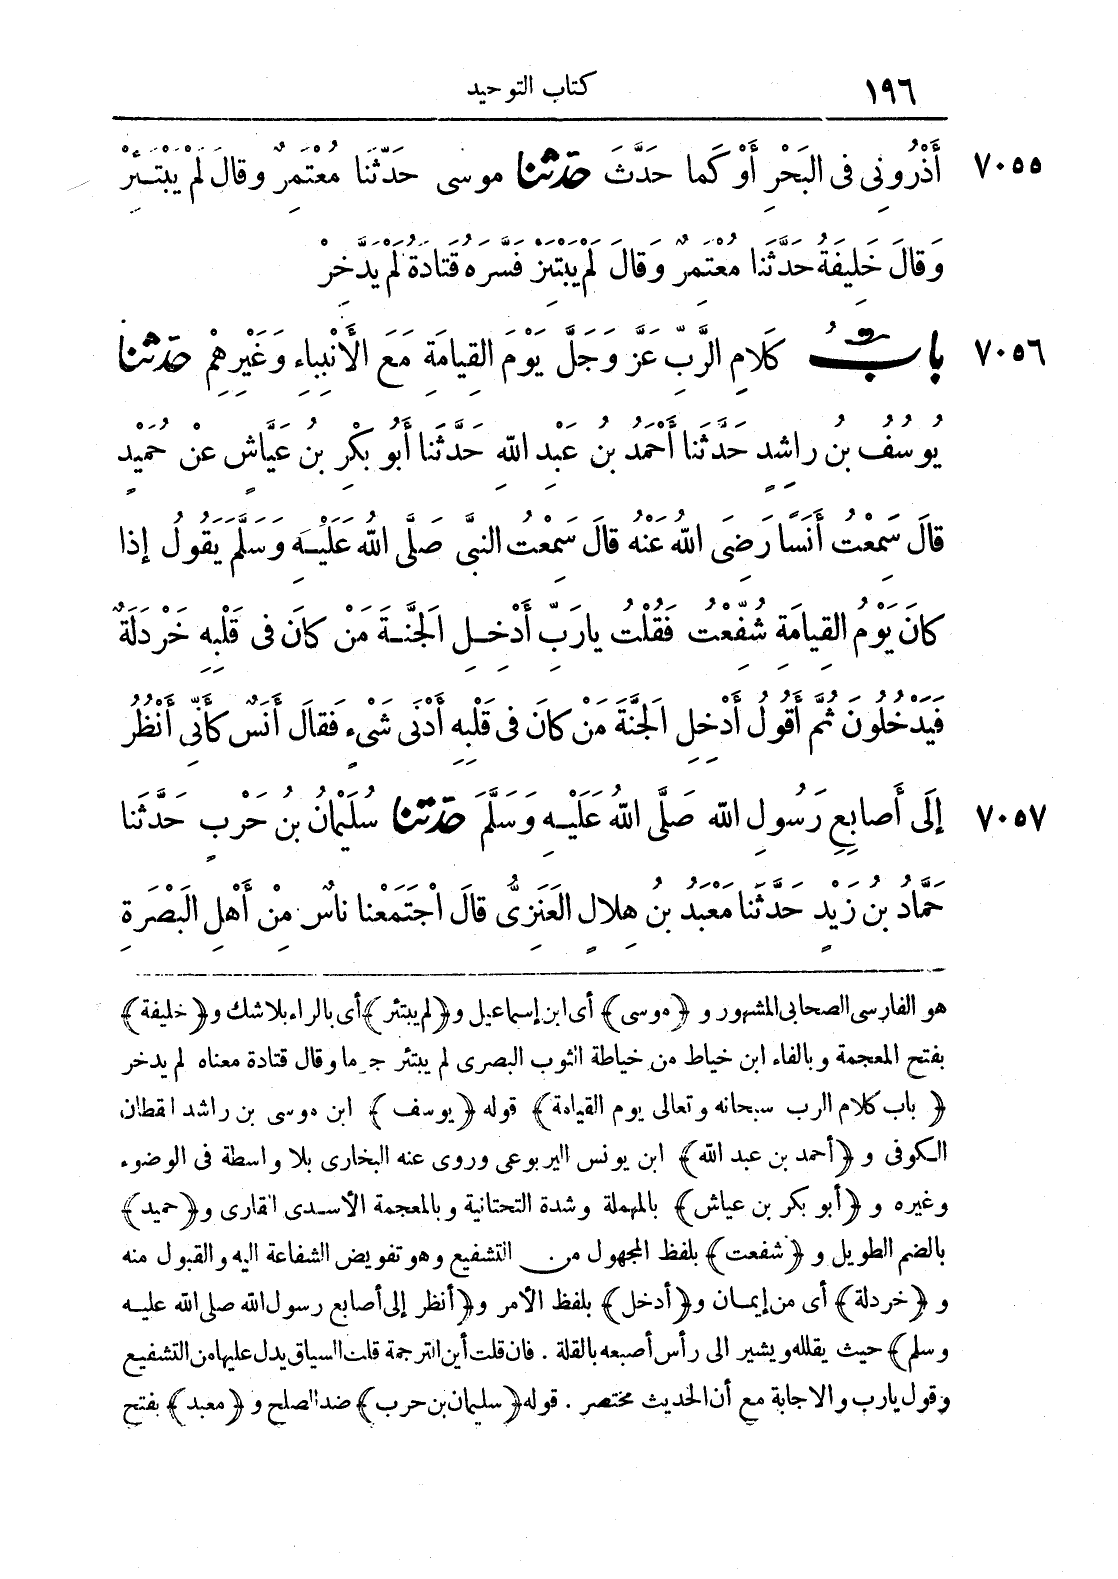 ١٩٦
كتاب التوحيد
٧٠٥٥ أَذْرُونِى فى البَحْرِ أَوْ كَما حَدَّثَ حدّثنا موسى حَدَّثَنا مُعْتَمِرٌ وقالَ لَمْ يَبْتَئِرْ
وَقالَ خَلِيفَةُ حَدَّثَنا مُعْتَمِرٌ وَقالَ لَمْ يَبْتَئِزْ فَسَّرَهُ قَتَادَةُ لَمْ يَدَّخِرْ
٧٠٥٦ بابُ كَلامِ الرَّبِّ عَزَّ وَجَلَّ يَوْمَ القِيامَةِ مَعَ الأَنْبِياءِ وَغَيْرِهِمْ حدّثنا
يُوسُفُ بنُ راشِدٍ حَدَّثَنا أَحْمَدُ بنُ عَبْدِ اللهِ حَدَّثَنا أَبُو بَكْرِ بنُ عَيَّاشٍ عنْ حُمَيْدٍ
قالَ سَمِعْتُ أَنَسًا رَضِىَ اللهُ عَنْهُ قالَ سَمِعْتُ النبىَّ صَلَّى اللهُ عَلَيْهِ وَسَلَّمَ يَقُولُ إذا
كانَ يَوْمُ القِيامَةِ شُفِّعْتُ فَقُلْتُ يارَبِّ أَدْخِلِ الجَنَّةَ مَنْ كانَ فى قَلْبِهِ خَرْدَلَةٌ
فَيَدْخُلُونَ ثُمَّ أَقُولُ أَدْخِلِ الجَنَّةَ مَنْ كانَ فى قَلْبِهِ أَدْنَى شَىْءٍ فَقالَ أَنَسٌ كَأَنِّى أَنْظُرُ
٧٠٥٧ إلَى أَصابِعِ رَسُولِ اللهِ صَلَّى اللهُ عَلَيْهِ وَسَلَّمَ حدّثنا سُلَيْمانُ بنُ حَرْبٍ حَدَّثَنا
حَمَّادُ بنُ زَيْدٍ حَدَّثَنا مَعْبَدُ بنُ هِلالٍ العَنَزِىُّ قالَ اجْتَمَعْنا ناسٌ مِنْ أَهْلِ البَصْرَةِ
هو الفارسى الصحابى المشهور و ﴿موسى﴾ أى ابن إسماعيل و﴿لم يبتئر﴾ أى بالراء بلا شك و﴿خليفة﴾
بفتح المعجمة وبالفاء ابن خياط من خياطة الثوب البصرى لم يبتئر جزما وقال قتادة معناه لم يدخر
﴿باب كلام الرب سبحانه وتعالى يوم القيامة﴾ قوله ﴿يوسف﴾ ابن موسى بن راشد القطان
الكوفى و ﴿أحمد بن عبد الله﴾ ابن يونس اليربوعى وروى عنه البخارى بلا واسطة فى الوضوء
وغيره و ﴿أبو بكر بن عياش﴾ بالمهملة وشدة التحتانية وبالمعجمة الأسدى القارى و﴿حميد﴾
بالضم الطويل و ﴿شفعت﴾ بلفظ المجهول من التشفيع وهو تفويض الشفاعة اليه والقبول منه
و ﴿خردلة﴾ أى من إيمان و﴿أدخل﴾ بلفظ الأمر و﴿أنظر إلى أصابع رسول الله صلى الله عليه
وسلم﴾ حيث يقلله ويشير الى رأس أصبعه بالقلة . فان قلت أين الترجمة قلت السياق يدل عليها من التشفيع
وقول يارب والاجابة مع أن الحديث مختصر . قوله ﴿سليمان بن حرب﴾ ضد الصلح و ﴿معبد﴾ بفتح